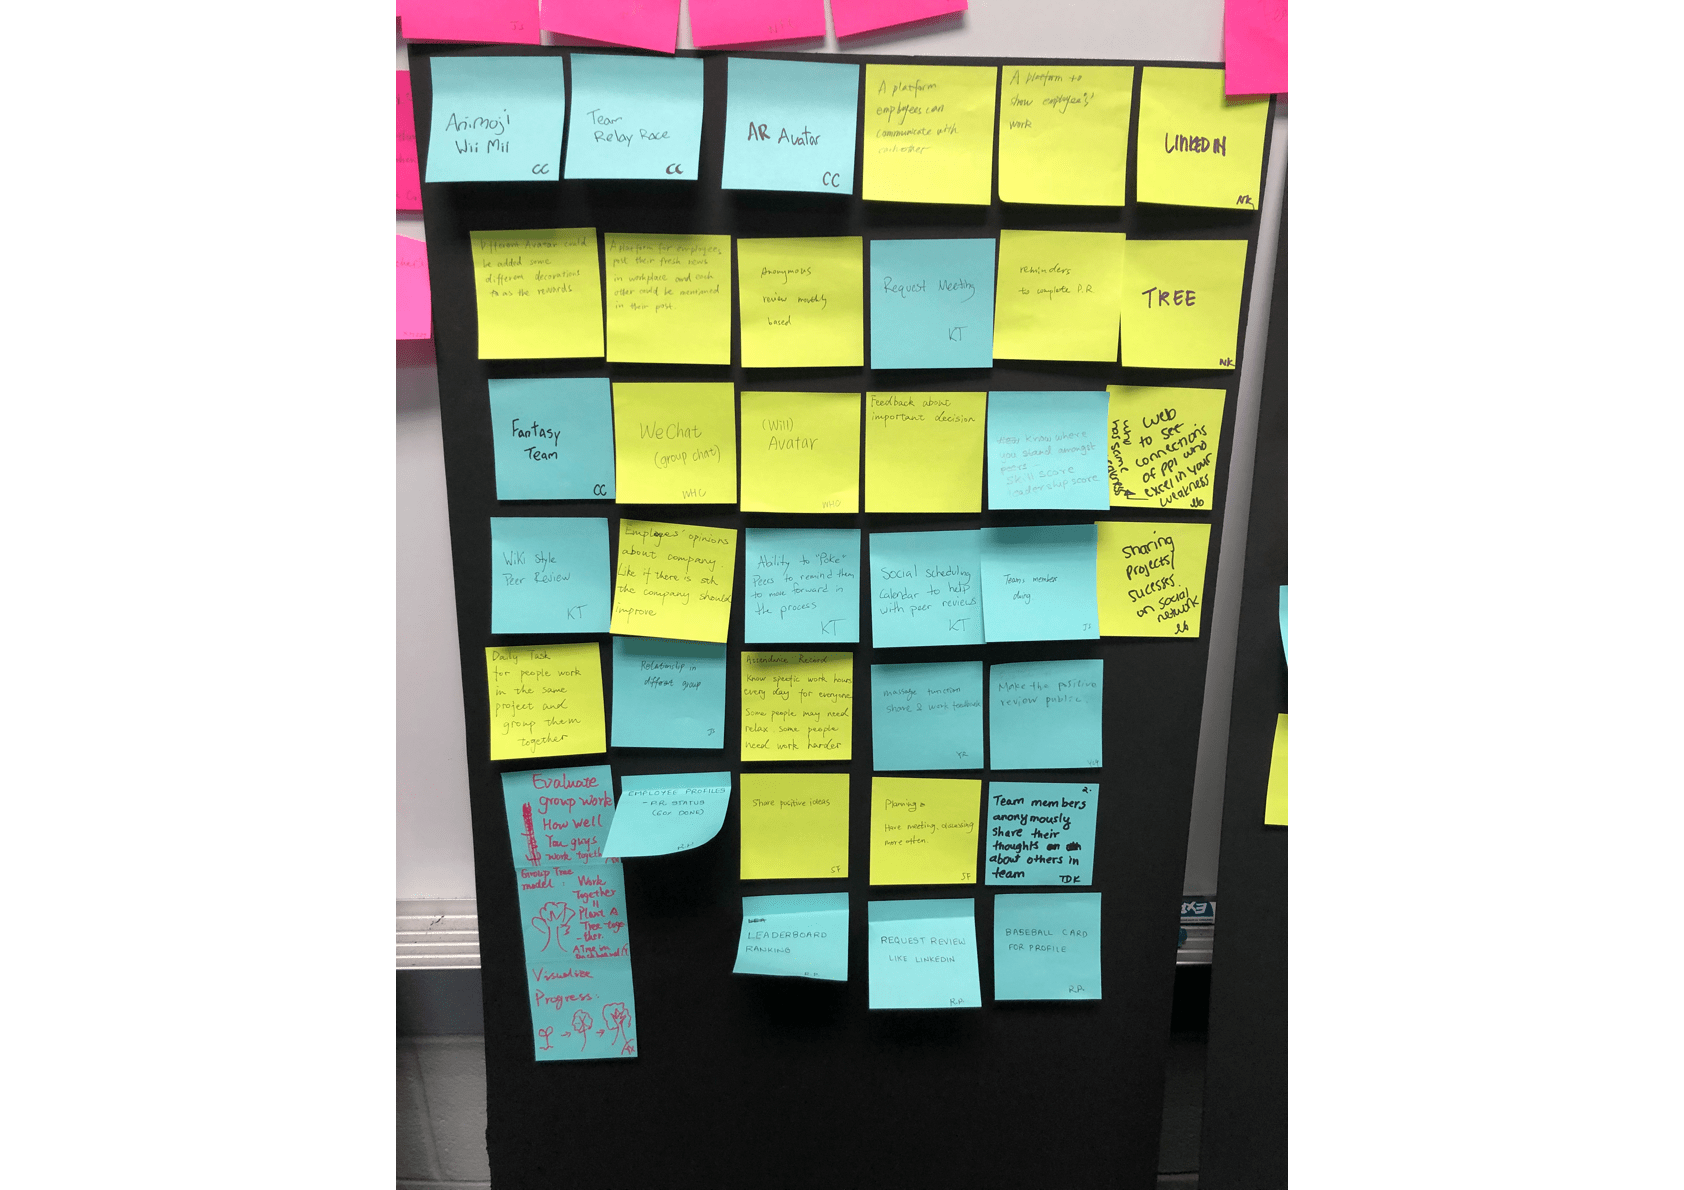 Animoji
Wii Mii
CC
Team
Relay Race
CC
AR Avatar
CC
A platform
employees can
communicate with
each other
A platform to
show employee's'
work
LINKEDIN
NK
Different Avatar could
be added some
different decorations
to as the rewards
A platform for employees
post their fresh news
in workplace and each
other could be mentioned
in their post.
Anonymous
review monthly
based
Request Meeting
KT
reminders
to complete P.R
TREE
NK
Fantasy
Team
CC
WeChat
(group chat)
WHU
(Will)
Avatar
WHU
Feedback about
important decision
know where
you stand amongst
peers -
Skill score
leadership score
web
to see
connections
of ppl who
excel in your
weakness
Wiki Style
Peer Review
KT
Employees' opinions
about company.
Like if there is sth
the company should
improve
Ability to "Poke"
Peers to remind them
to move forward in
the process
KT
Social scheduling
Calendar to help
with peer reviews
KT
Team member
doing
Sharing
projects/
sucesses
on social
network
Daily Task
for people work
in the same
project and
group them
together
Relationship in
different group
Attendance Record
Know specific work hours
every day for everyone
Some people may need
relax some people
need work harder
massage function
share & work feedback
YZ
Make the positive
review public.
Evaluate
group work
How well
You guys
work together
EMPLOYEE PROFILES
- P.R STATUS
(60% DONE)
R.A.
Share positive ideas
SF
Planning
Have meeting, discussing
more often.
SF
2.
Team members
anonymously
share their
thoughts
about others in
team
TDK
Group Tree
model:
Work
Together
=
Plant A
Tree toge
-ther.
Visualize
Progress.
LEADERBOARD
RANKING
R.A.
REQUEST REVIEW
LIKE LINKEDIN
R.A.
BASEBALL CARD
FOR PROFILE
R.A.